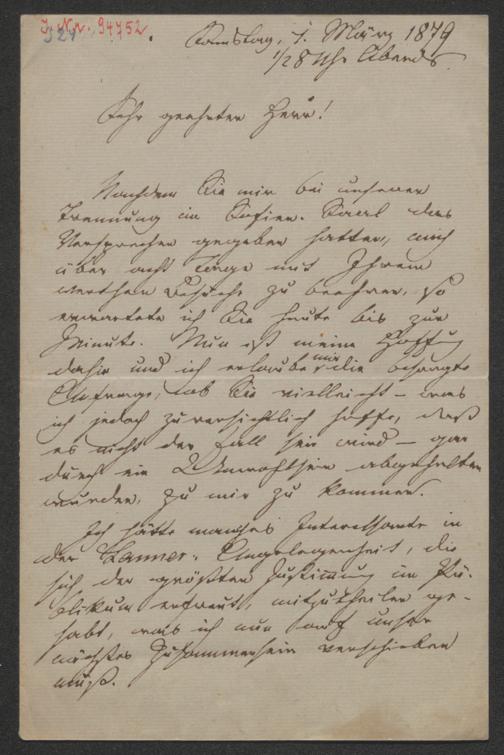 J. Nr. 94752
Samstag, 1. März 1879
1/28 Uhr Abends
Sehr geehrter Herr!
Nachdem Sie mir bei unserer
Trennung im Sofien-Saal das
Versprechen gegeben hatten, mich
über acht Tage mit Ihrem
werthen Besuche zu beehren, so
erwartete ich Sie heute bis zur
Minute. Nun ist meine Hoffnung
dahin und ich erlaube mir die besorgte
Anfrage, ob Sie vielleicht – was
ich jedoch zuversichtlich hoffe, daß
es nicht der Fall sein wird – gar
durch ein Unwohlsein abgehalten
wurden, zu mir zu kommen.
Ich hätte manches Interessante in
der Lanner-Angelegenheit, die
sich der größten Zustimmung im Pu-
blikum erfreut, mitzutheilen ge-
habt, was ich nun auf unser
nächstes Zusammensein verschieben
muß.